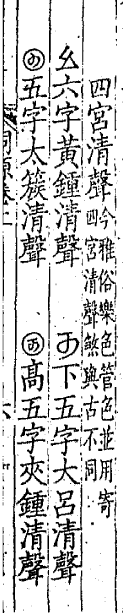 四宮清聲今雅俗樂色管色並用寄
四宮清聲煞與古不同
幺六字黃鍾清聲　下五字大呂清聲
五字太簇清聲　高五字夾鍾清聲
詞源卷上